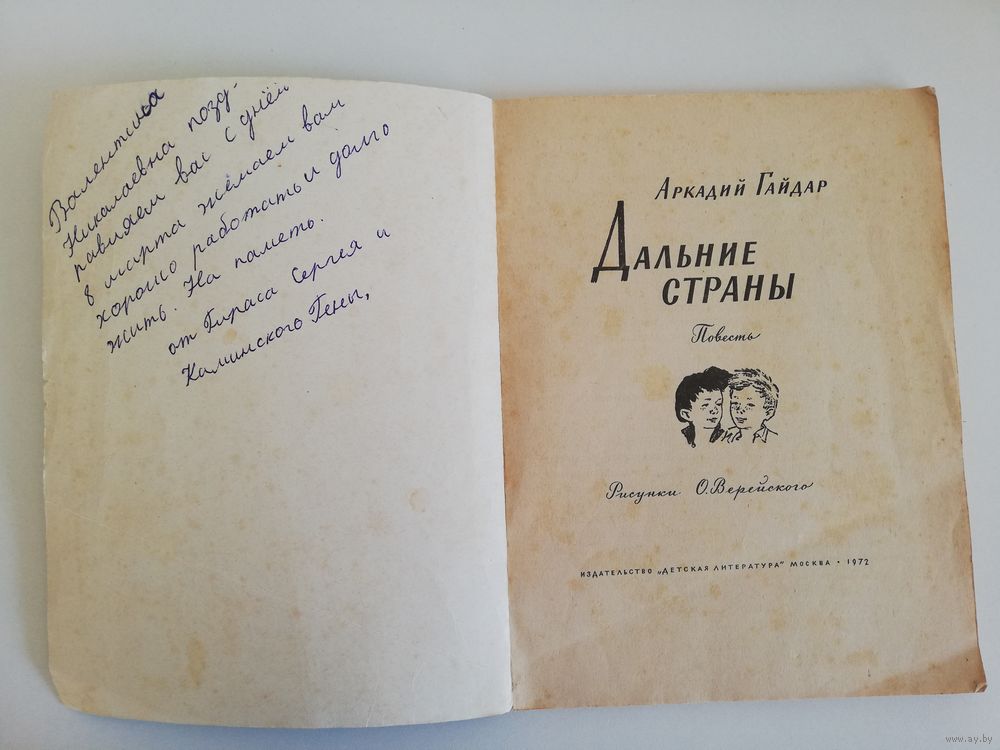 Валентина
Николаевна позд-
равляем вас с днём
8 марта желаем вам
хорошо работать и долго
жить. На память.
от Гираса Сергея и
Каминского Гены,
Аркадий Гайдар
Дальние
страны
Повесть
Рисунки О. Верейского
ИЗДАТЕЛЬСТВО „ДЕТСКАЯ ЛИТЕРАТУРА" МОСКВА • 1972
www.ay.by